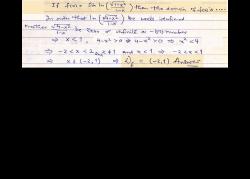 If f(x) = Sin ln (√(4-x²)/(1-x)) then the domain of f(x) is ....
In order that ln (√(4-x²)/(1-x)) be well defined
Neither √(4-x²)/(1-x) be zero or infinite or -ive number
⇒ x ≤ 1, 4-x² > 0 ⇒ 4-x² > 0 ⇒ x² < 4
⇒ -2 < x < 2 and x ≠ 1 and x < 1 ⇒ -2 < x < 1
⇒ x ∈ (-2, 1) ⇒ D_f = (-2, 1) Answer